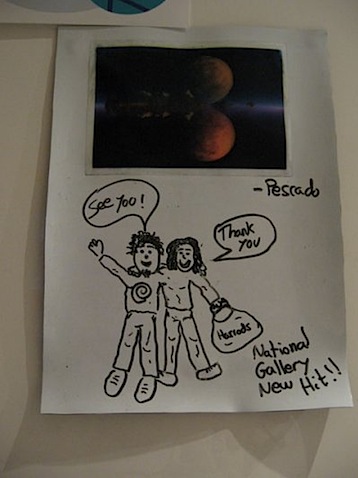 - Pescado
See YOU!
Thank
YOU
Harrods
National
Gallery
New Hit!!